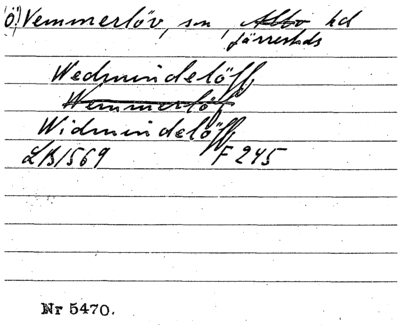 Ö! Vemmerlöv, sn, Albo hd
Järrestads
Wedmindelöff
Wemmerlöf
Widmindelöff
LB1569 F 245
Nr 5470.